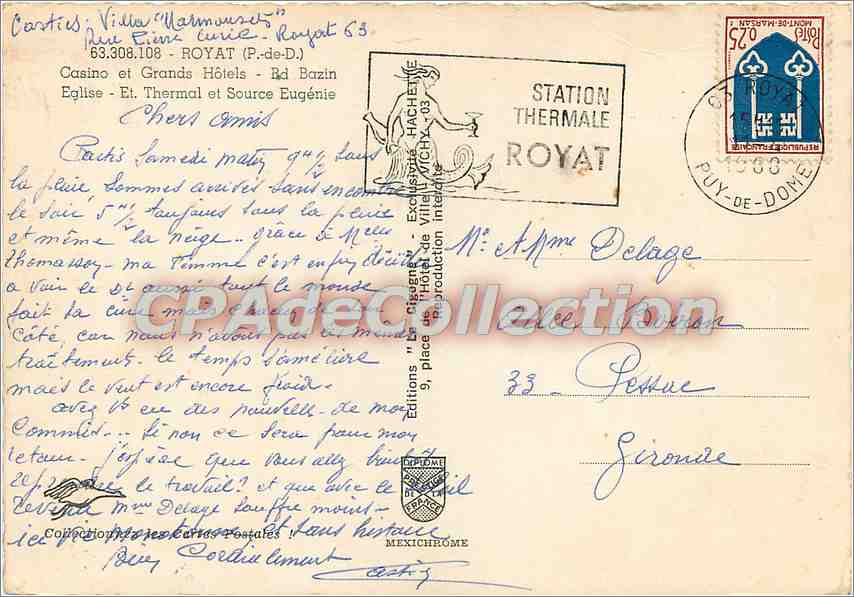 Casties. Villa "Marmousets"
Rue Pierre Curie - Royat 63
63.308.108 - ROYAT (P.-de-D.)
Casino et Grands Hôtels - Bd Bazin
Eglise - Et. Thermal et Source Eugénie
Chers amis
Partis Samedi matin 9h½ sous
la pluie sommes arrivés sans encombre
le soir 5h½ toujours sous la pluie
et même la neige.. grâce à Melle
Thomasson - ma femme s'est enfin décidée
a voir le Dr aussi tout le monde
fait sa cure mais chacun de son
côté, car nous n'avons pas le même
traitement. le temps s'améliore
mais le vent est encore froid.
avez Vs eu des nouvelles de mon
Commis... Si non ce sera pour mon
retour. j'espère que vous allez bientôt
reprendre le travail? et que avec le soleil
revenu Mme Delage souffre moins -
ici Vie monotone et sans histoire
Bien Cordialement
Casties
Collectionnez les Cartes Postales !
Editions "La Cigogne" - Exclusivité HACHETTE
9, place de l'Hôtel de Ville - VICHY - 03
Reproduction interdite
DIPLOME
PRESTIGE
DE LA
FRANCE
MEXICHROME
STATION
THERMALE
ROYAT
63 ROYAT
PUY-DE-DOME
Postes
0,25
MONT-DE-MARSAN
REPUBLIQUE FRANÇAISE
Mr & Mme Delage
33 - Pessac
Gironde
CPAdeCollection